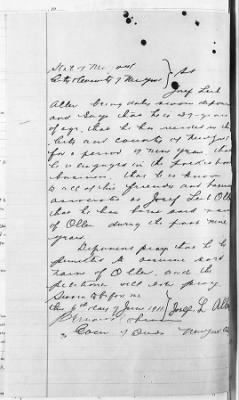 State of New York
City & County of New York } SS
Josef Leib
Aller being duly sworn deposes
and says that he is 29 years
of age, that he has resided in the
City and County of New York
for a period of nine years that
he is engaged in the
business, that he is known
to all of his friends and business
associates as Josef Leib Oller
that he has borne said name
of Oller during the past nine
years.
Deponent prays that he be
permitted to assume said
name of Oller, and the
petitioner will ever pray
Sworn to before me
this 6th day of June 1911 } Josef L. Aller
Com of Deeds New York